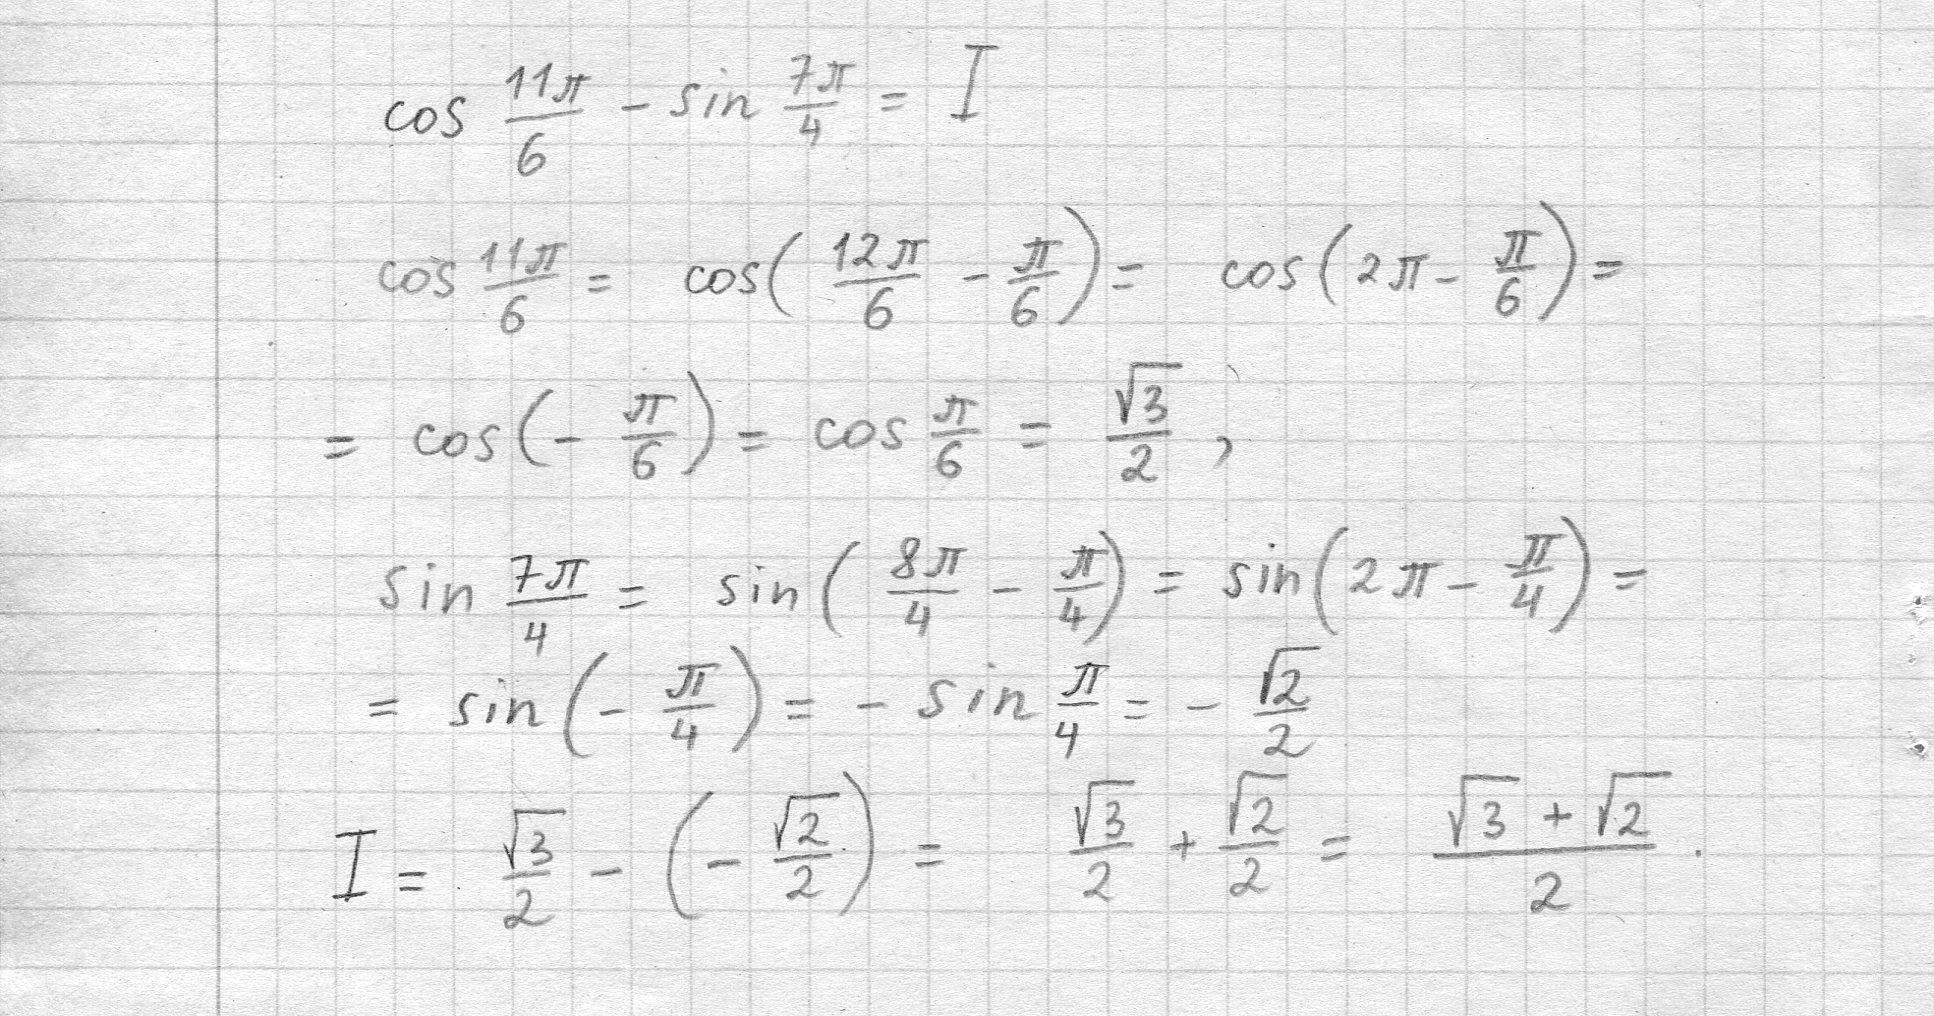 cos 11π/6 - sin 7π/4 = I
cos 11π/6 = cos(12π/6 - π/6) = cos(2π - π/6) =
= cos(-π/6) = cos π/6 = √3/2 ,
sin 7π/4 = sin(8π/4 - π/4) = sin(2π - π/4) =
= sin(-π/4) = - sin π/4 = - √2/2
I = √3/2 - (-√2/2) = √3/2 + √2/2 = (√3 + √2)/2 .